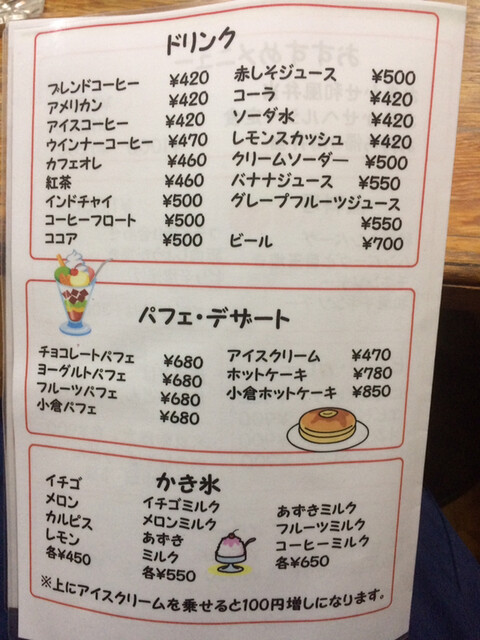 ドリンク
ブレンドコーヒー ¥420
アメリカン ¥420
アイスコーヒー ¥420
ウインナーコーヒー ¥470
カフェオレ ¥460
紅茶 ¥460
インドチャイ ¥500
コーヒーフロート ¥500
ココア ¥500
赤しそジュース ¥500
コーラ ¥420
ソーダ水 ¥420
レモンスカッシュ ¥420
クリームソーダー ¥500
バナナジュース ¥550
グレープフルーツジュース
¥550
ビール ¥700
パフェ・デザート
チョコレートパフェ ¥680
ヨーグルトパフェ ¥680
フルーツパフェ ¥680
小倉パフェ ¥680
アイスクリーム ¥470
ホットケーキ ¥780
小倉ホットケーキ ¥850
かき氷
イチゴ
メロン
カルピス
レモン
各¥450
イチゴミルク
メロンミルク
あずき
ミルク
各¥550
あずきミルク
フルーツミルク
コーヒーミルク
各¥650
※上にアイスクリームを乗せると100円増しになります。